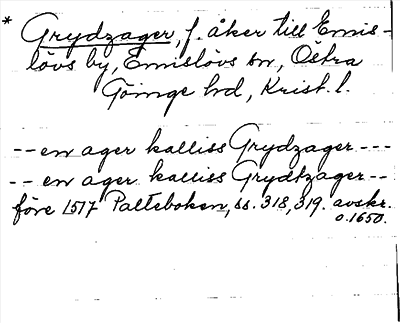 * Grydzager, f. åker till Emis-
lövs by, Emislövs sn, Östra
Göinge hd, Krist. l.
-- en ager kalliss Grydzager ---
-- en ager kalliss Grydtzager --
före 1517 Palteboken, ss. 318, 319. avskr.
o. 1650.